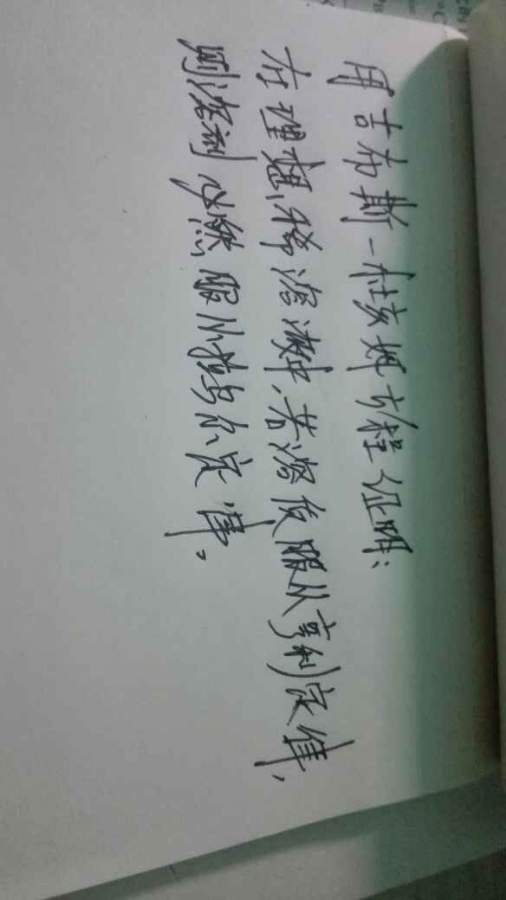 用吉布斯-杜亥姆方程证明:
在理想稀溶液中,若溶质服从亨利定律,
则溶剂必然服从拉乌尔定律。